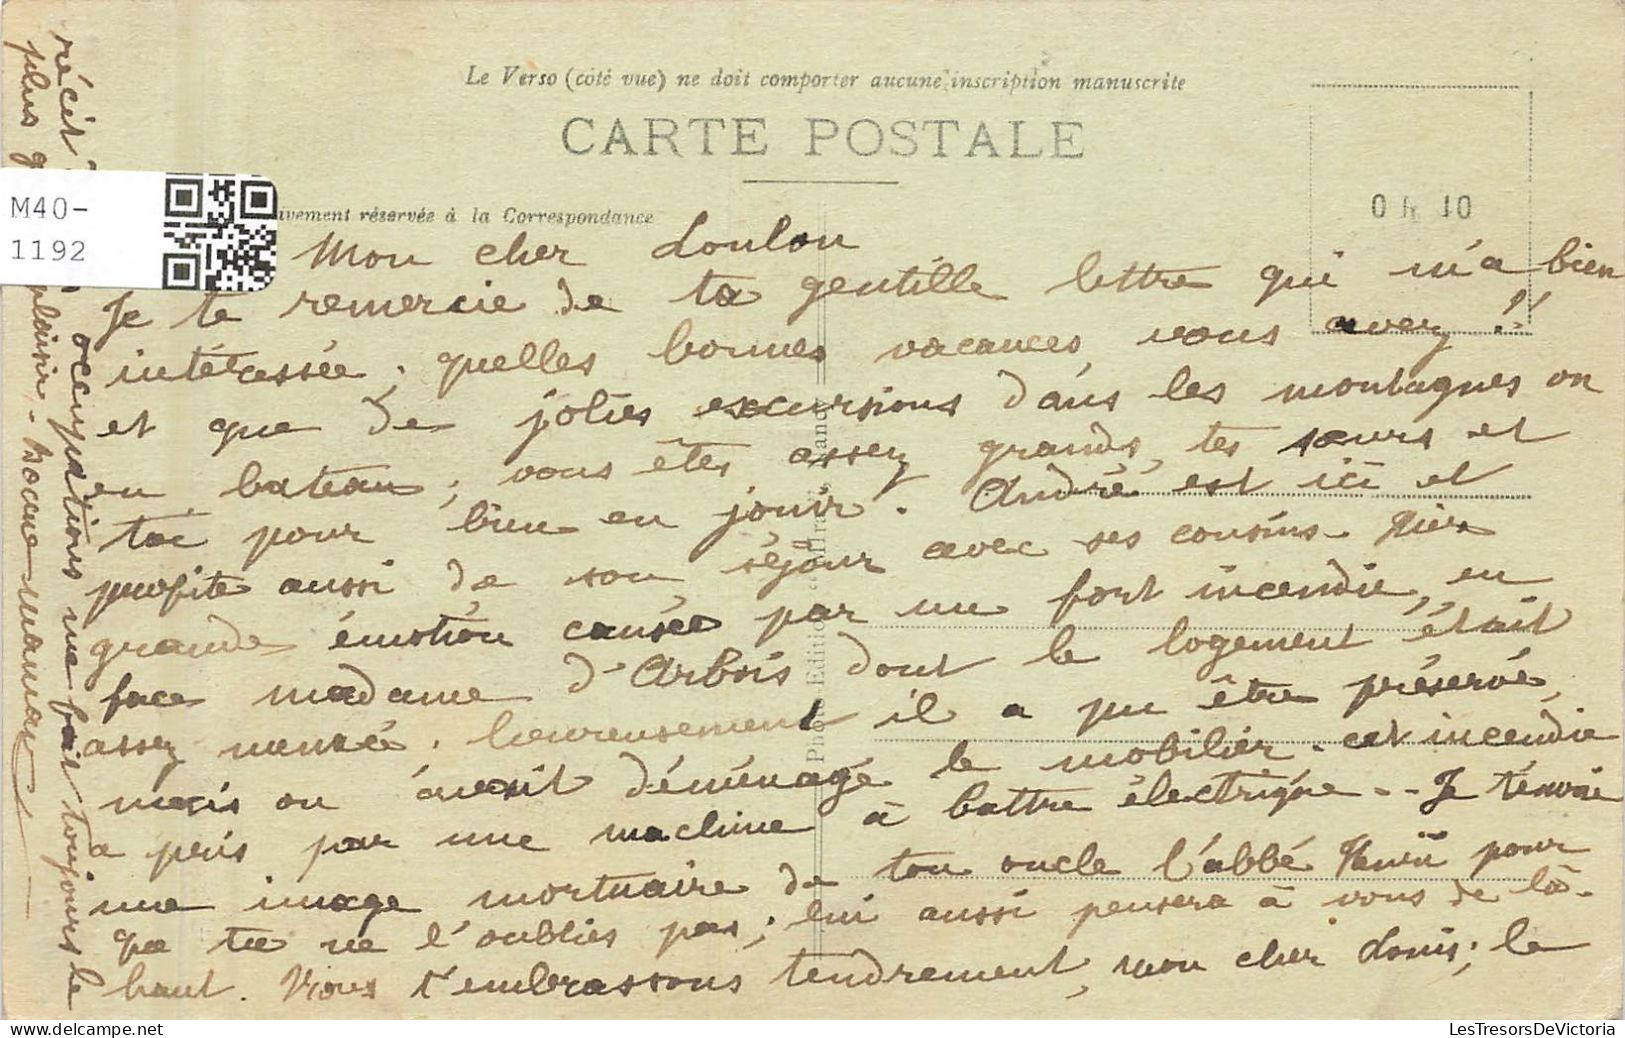 Le Verso (côté vue) ne doit comporter aucune inscription manuscrite
CARTE POSTALE
ivement réservée à la Correspondance
0 fr 10
M40-
1192
Mon cher Loulou
Je te remercie de ta gentille lettre qui m'a bien
intéressée ; quelles bonnes vacances vous avez !!
et que de jolies excursions dans les montagnes on
en bateau ; vous êtes assez grands, tes sœurs et
toi pour bien en jouir. André est ici et
profite aussi de son séjour avec ses cousins. Hier
grande émotion causée par un fort incendie, en
face madame d'Arbois dont le logement était
assez menacé. heureusement il a pu être préservé,
mais on avait déménagé le mobilier. cet incendie
a pris par une machine à battre électrique.. Je t'envoie
une image mortuaire de ton oncle l'abbé Henri pour
que tu ne l'oublies pas ; lui aussi pensera à vous de là-
haut. Nous t'embrassons tendrement, mon cher Louis ; le
récit occupations me fait toujours le
plus plaisir. - Bonne maman
Photo Edition
LesTresorsDeVictoria